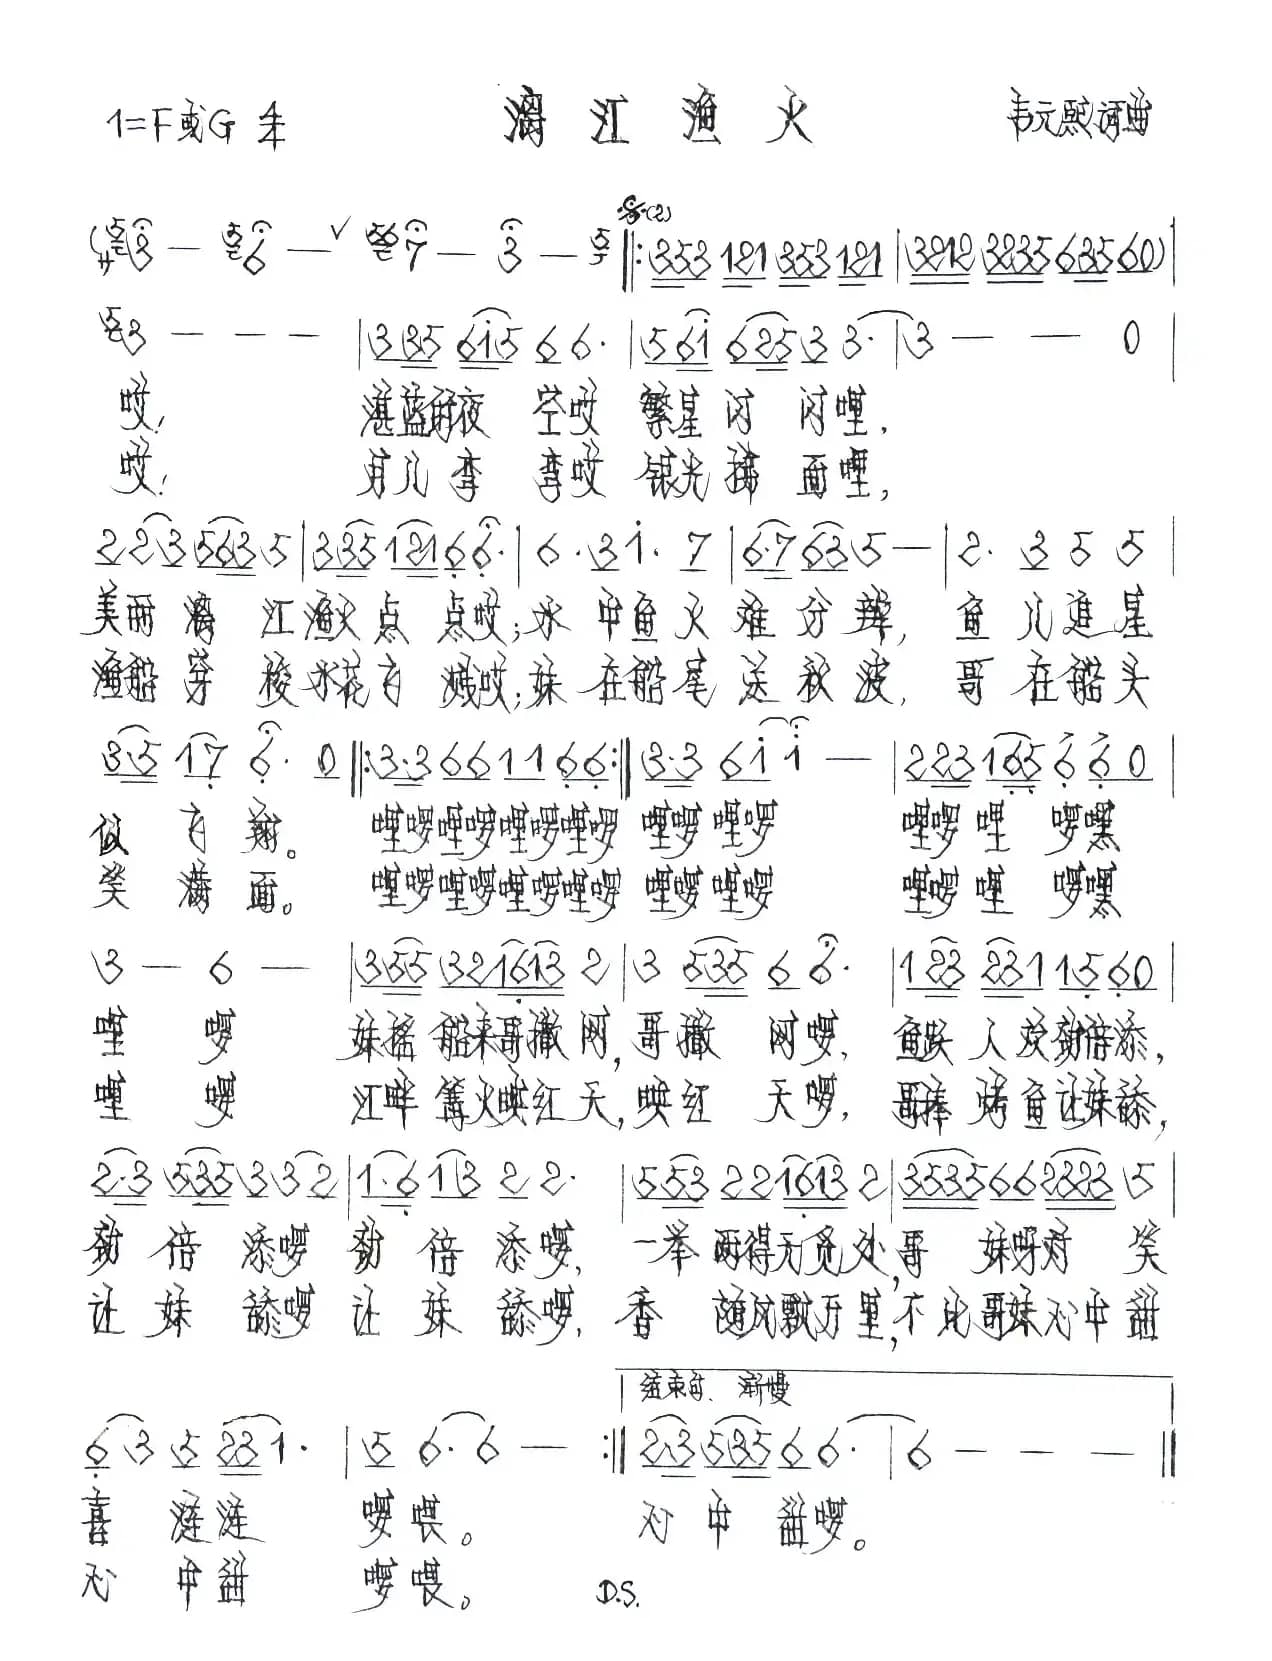 1=F或G 4/4 漓江渔火 韦元熙词曲
(サ 3 — 6 — ∨ 7 — 3 — 5 ‖: 353 121 353 121 | 3212 3235 635 60)
3 — — — | 3 35 6i5 6 6· | 5 6i 625 3 3· | 3 — — 0
哎! 湛蓝的夜 空哎 繁星闪 闪哩,
哎! 月儿弯 弯哎 银光拂 面哩,
2 23 563 5 | 335 121 6 6· | 6· 3 i· 7 | 6·7 63 5 — | 2· 3 5 5
美丽漓 江渔火点 点哎; 水中鱼火难分辨, 鱼儿追星
渔船穿 梭水花 溅哎; 妹在船尾送秋波, 哥在船头
3·5 17 6· 0 ‖: 3·3 66 11 66 :‖ 3·3 6i i — | 223 165 6 6 0
似 翔。 哩啰哩啰哩啰哩啰 哩啰哩啰 哩啰哩 啰嘿
笑满面。 哩啰哩啰哩啰哩啰 哩啰哩啰 哩啰哩 啰嘿
3 — 6 — | 355 321613 2 | 3 535 6 6· | 123 231 15 60
哩 啰 妹摇船来哥撒网, 哥撒 网啰, 鱼跃人欢劲倍添,
哩 啰 江畔篝火映红天, 映红 天啰, 哥捧烤鱼让妹舔,
2·3 535 3 32 | 1·6 13 2 2· | 553 221613 2 | 3535662323 5
劲倍 添啰 劲倍 添啰, 一举两得无 处, 哥 妹呀对 笑
让妹 舔啰 让妹 舔啰, 香 随风飘万里, 不比哥妹心中甜
结束句、渐慢
63 5 231· | 5 6·6 — :‖ 2·3 535 6 6· | 6 — — — ‖
喜涟涟 啰喂。 心中甜啰。
心 中甜 啰喂。 D.S.